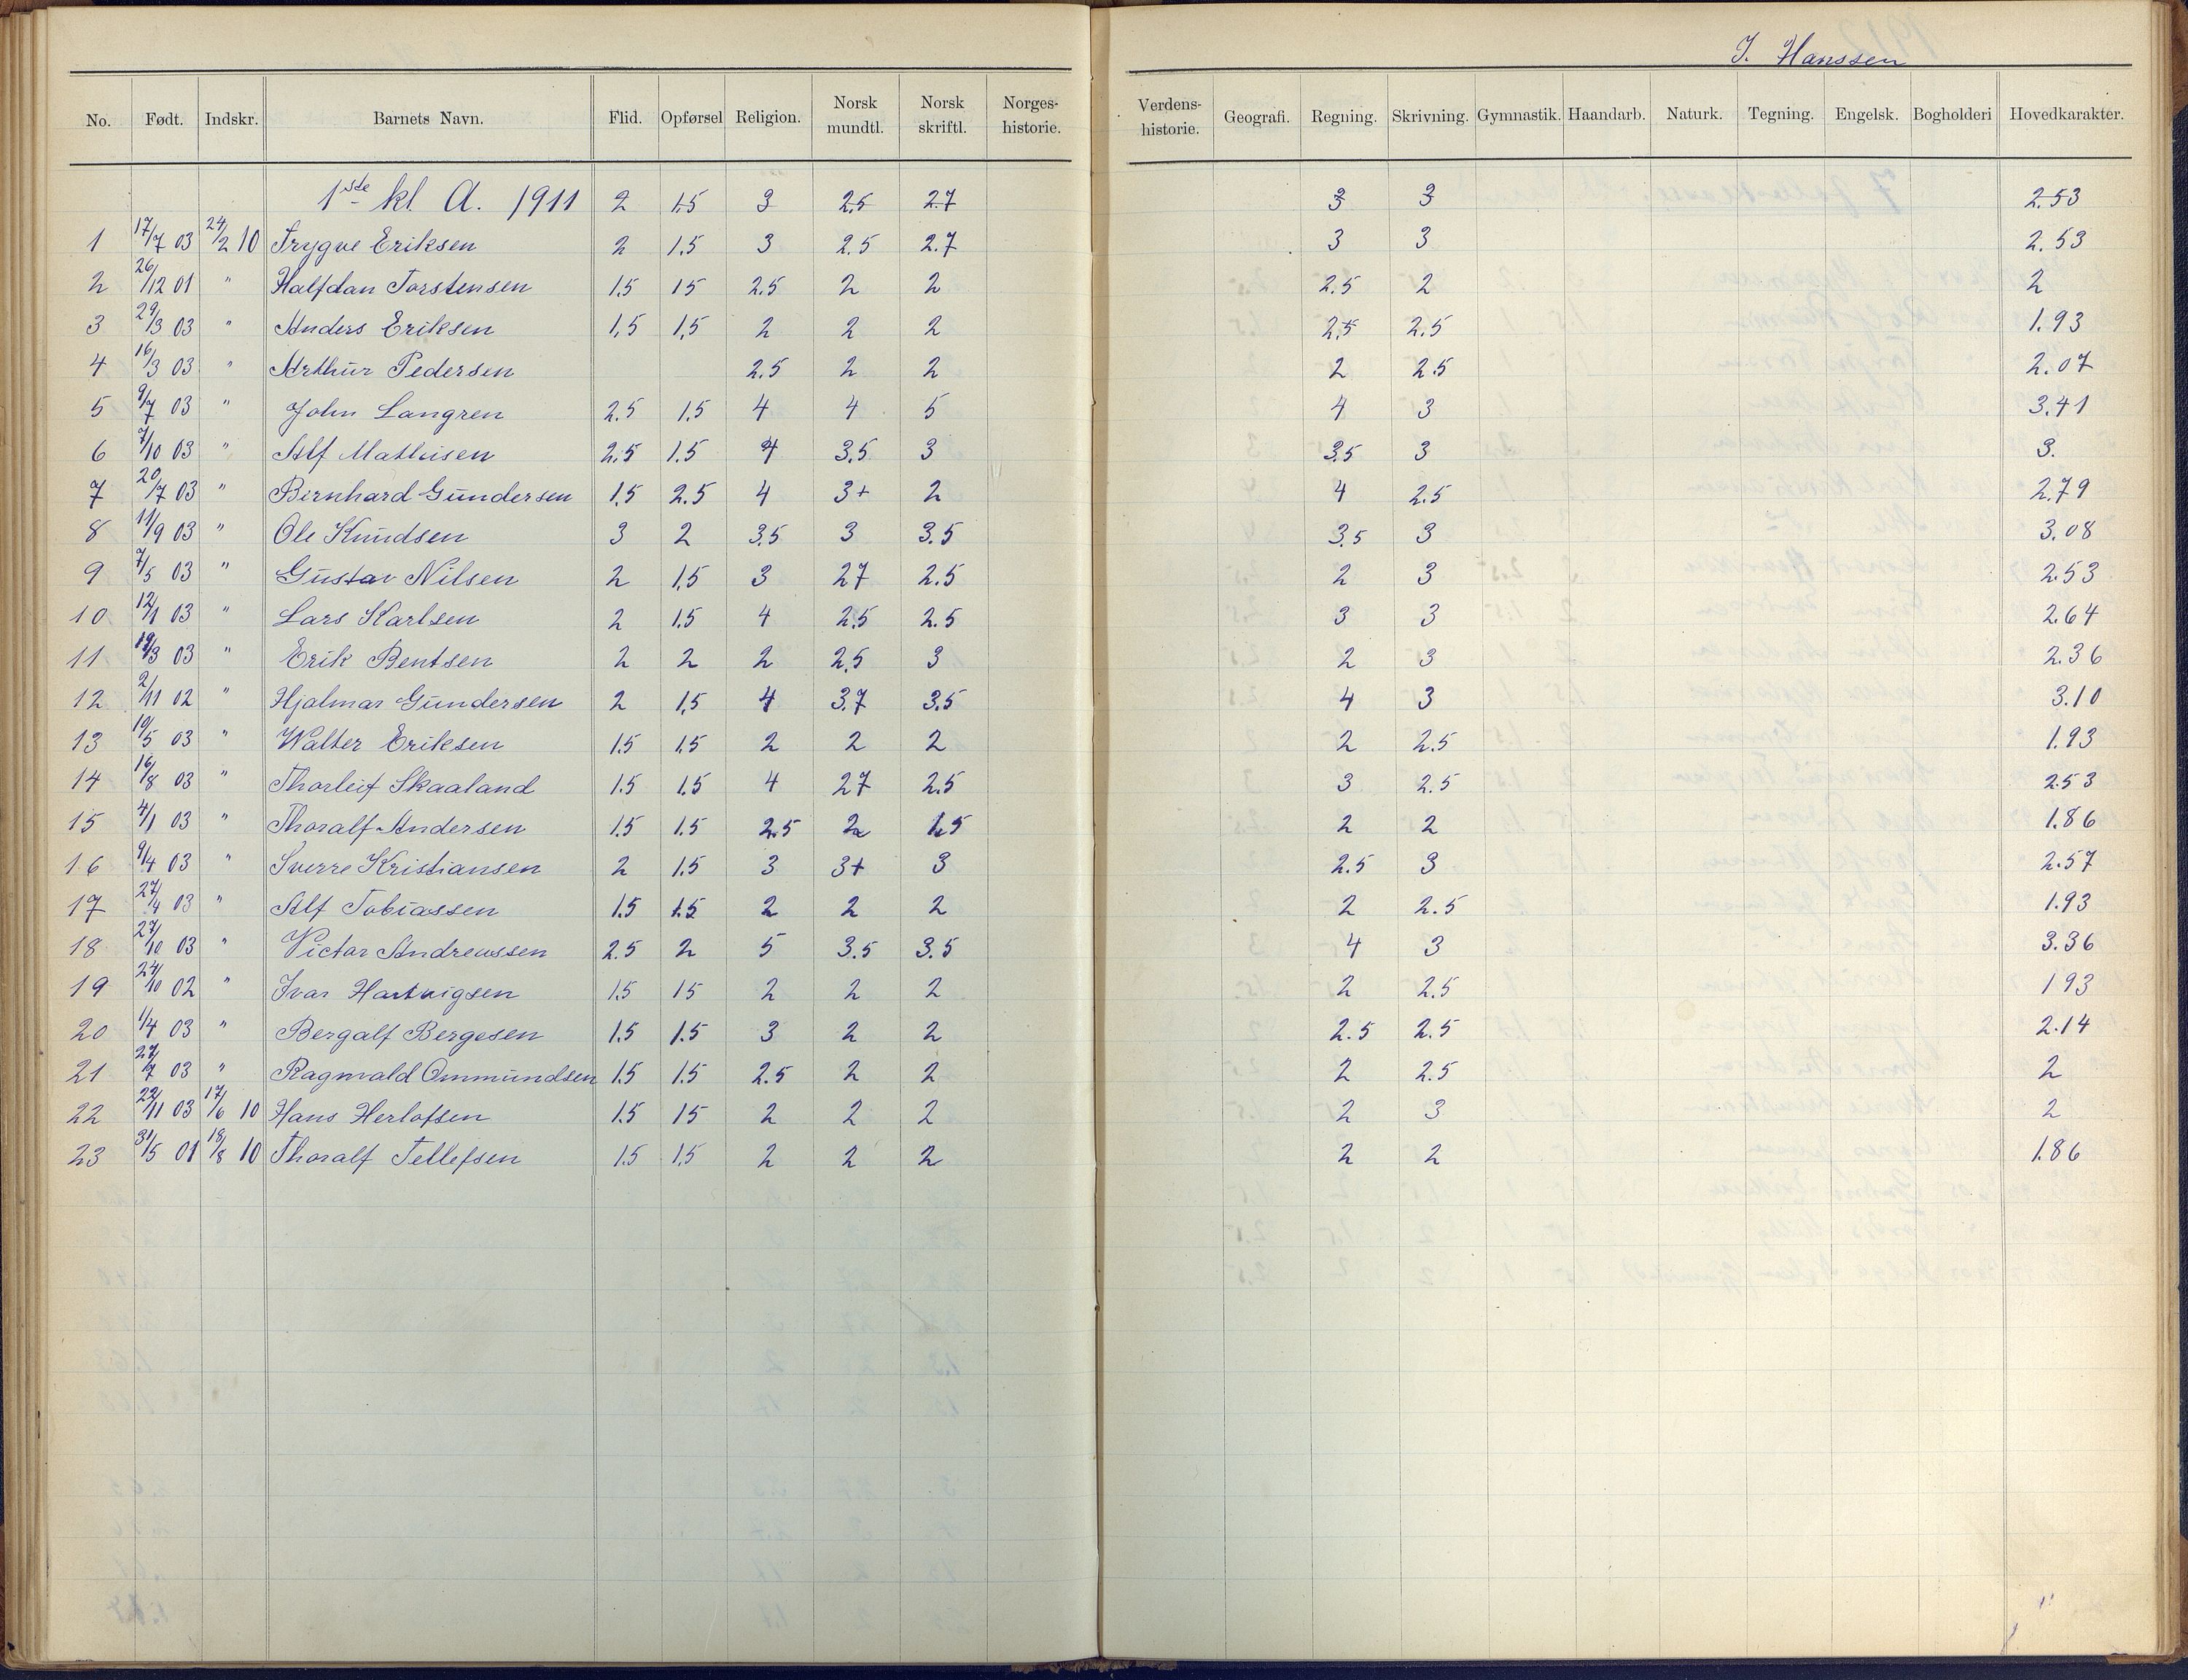 J. Hanssen
No. Født. Indskr. Barnets Navn. Flid. Opførsel Religion. Norsk mundtl. Norsk skriftl. Norges-historie. Verdens-historie. Geografi. Regning. Skrivning. Gymnastik. Haandarb. Naturk. Tegning. Engelsk. Bogholderi Hovedkarakter.
1ste kl. A. 1911 2 1.5 3 2.5 2.7 3 3 2.53
1 17/7 03 24/2 10 Trygve Eriksen 2 1.5 3 2.5 2.7 3 3 2.53
2 26/12 01 " Halfdan Torstensen 1.5 15 2.5 2 2 2.5 2 2
3 29/3 03 " Anders Eriksen 1,5 1,5 2 2 2 2,5 2.5 1.93
4 16/3 03 " Arthur Pedersen 2.5 2 2 2 2.5 2.07
5 9/7 03 " John Langren 2.5 1.5 4 4 5 4 3 3.41
6 7/10 03 " Alf Mathisen 2.5 1.5 4 3.5 3 3.5 3 3.
7 20/7 03 " Bernhard Gundersen 1.5 2.5 4 3+ 2 4 2.5 2.79
8 11/9 03 " Ole Knudsen 3 2 3.5 3 3.5 3.5 3 3.08
9 7/5 03 " Gustav Nilsen 2 1.5 3 27 2.5 2 3 2.53
10 12/1 03 " Lars Karlsen 2 1.5 4 2.5 2.5 3 3 2.64
11 19/3 03 " Erik Bentsen 2 2 2 2.5 3 2 3 2.36
12 2/11 02 " Hjalmar Gundersen 2 1,5 4 3.7 3.5 4 3 3.10
13 19/5 03 " Walter Eriksen 1.5 1.5 2 2 2 2 2.5 1.93
14 16/8 03 " Thorleif Skaaland 1.5 1.5 4 27 2.5 3 2.5 2.53
15 4/1 03 " Thoralf Andersen 1.5 1.5 2.5 2 1.5 2 2 1.86
16 9/4 03 " Sverre Kristiansen 2 1.5 3 3+ 3 2.5 3 2.57
17 27/4 03 " Alf Tobiassen 1.5 1.5 2 2 2 2 2.5 1.93
18 27/10 03 " Victor Andreassen 2.5 2 5 3.5 3.5 4 3 3.36
19 24/10 02 " Ivar Hartvigsen 1.5 15 2 2 2 2 2.5 193
20 1/4 03 " Bergalf Bergesen 1.5 1.5 3 2 2 2.5 2.5 2.14
21 27/7 03 " Ragnvald Ommundsen 1.5 1.5 2.5 2 2 2 2.5 2
22 22/11 03 17/6 10 Hans Herlofsen 1.5 15 2 2 2 2 3 2
23 31/5 01 18/8 10 Thoralf Tellefsen 1.5 1.5 2 2 2 2 2 1.86